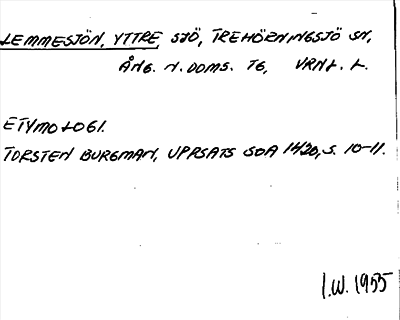 LEMMESJÖN, YTTRE, SJÖ, TREHÖRNINGSJÖ SN,
ÅNG. N. DOMS. TG, VRNL. L.
ETYMOLOGI.
TORSTEN BURGMAN, UPPSATS SOA 1420, S. 10-11.
I.W. 1955